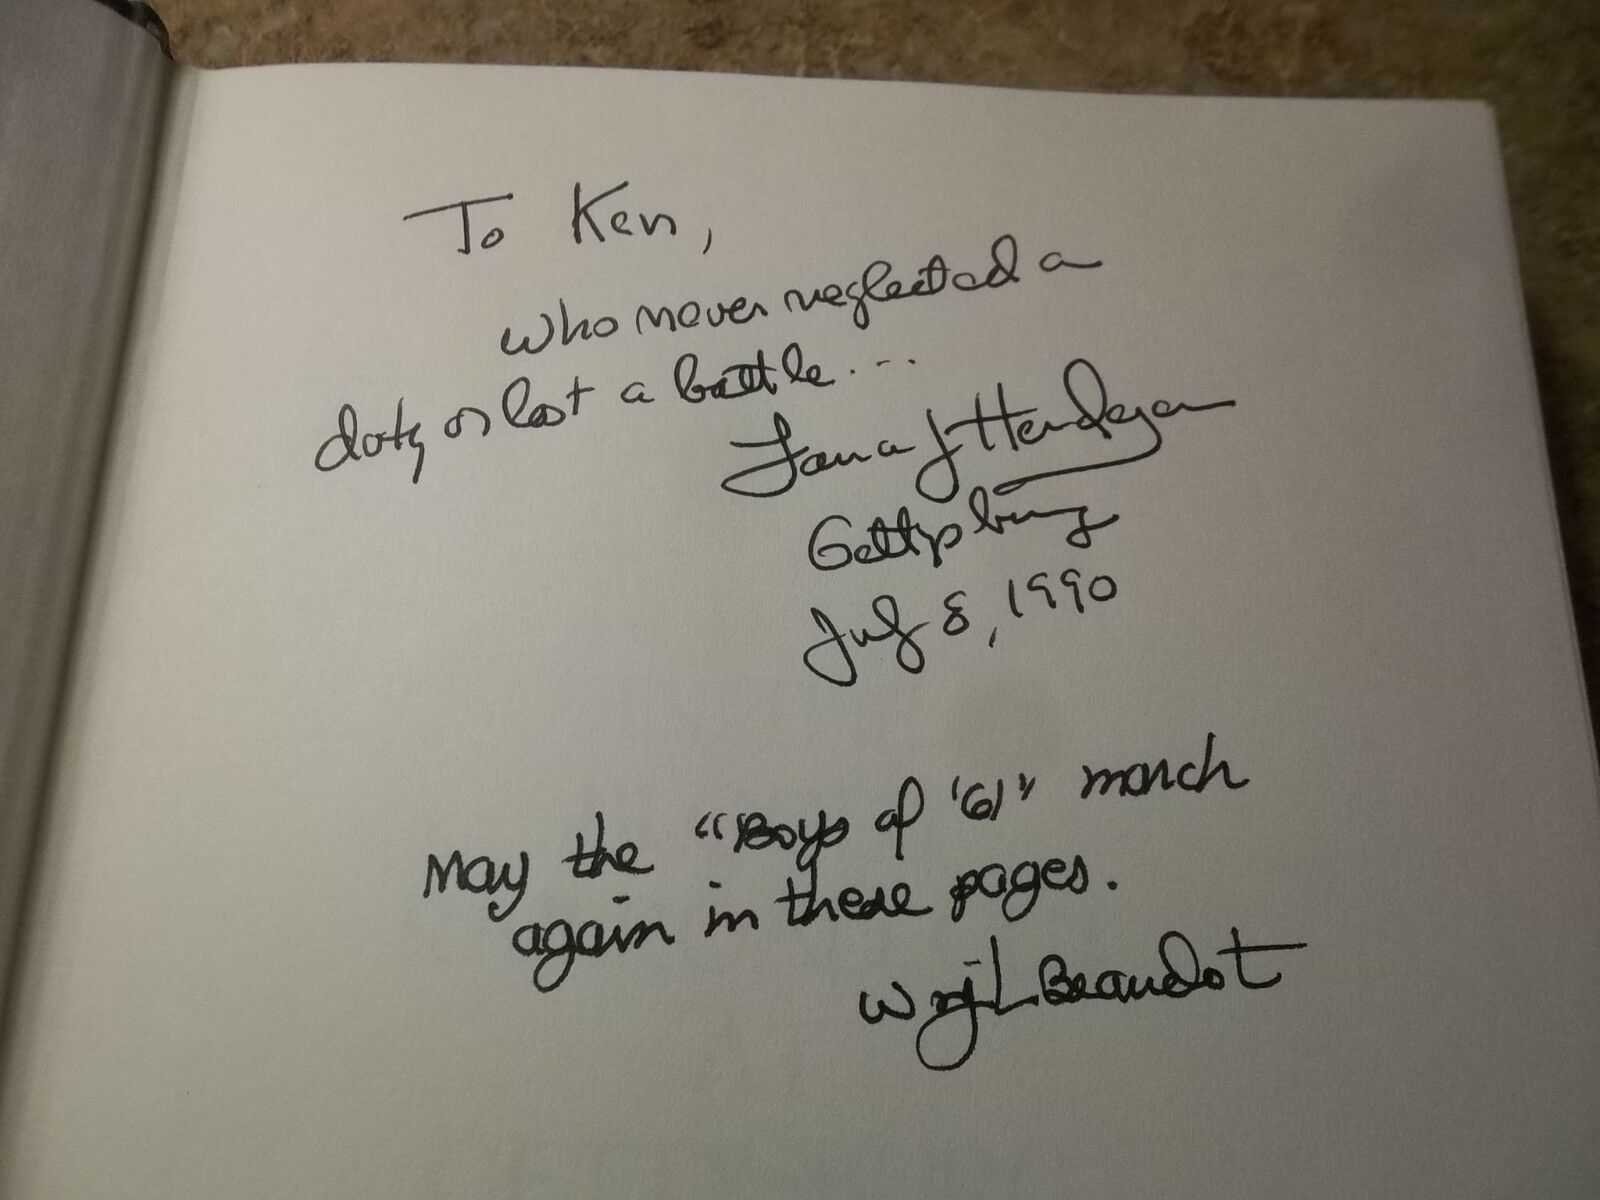 To Ken,
who never neglected a
duty or lost a battle...
Lance J Herdegen
Gettysburg
July 8, 1990
May the "Boys of '61" march
again in these pages.
Wm J L Beaudot